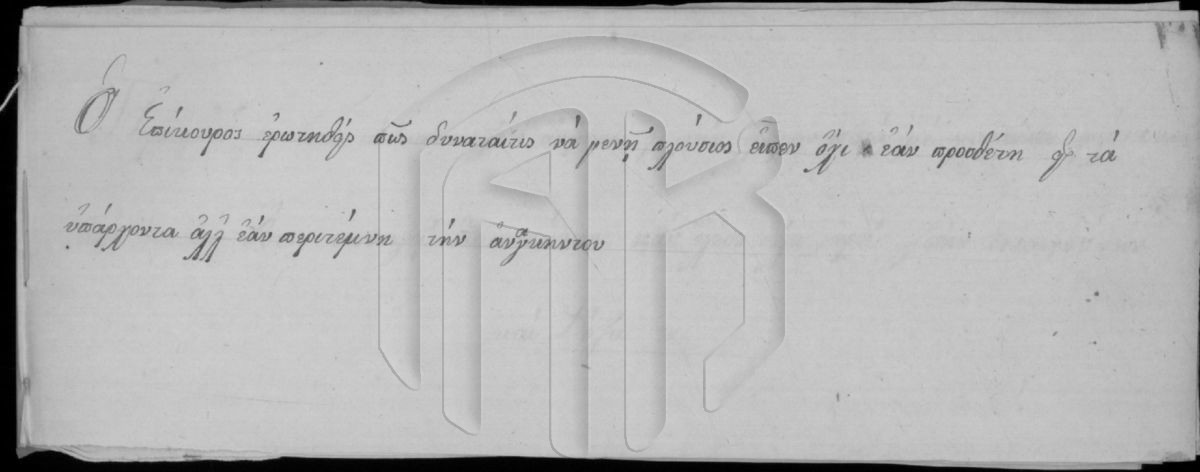 Ὁ Ἐπίκουρος ἐρωτηθεὶς πῶς δυναταίτις νά μενῃ πλούσιος εἶπεν ὄχι ἐάν προσθέτη εἰς τά
ὑπάρχοντα ἀλλ ἐάν περιτέμνη τήν ἀναγκηντου